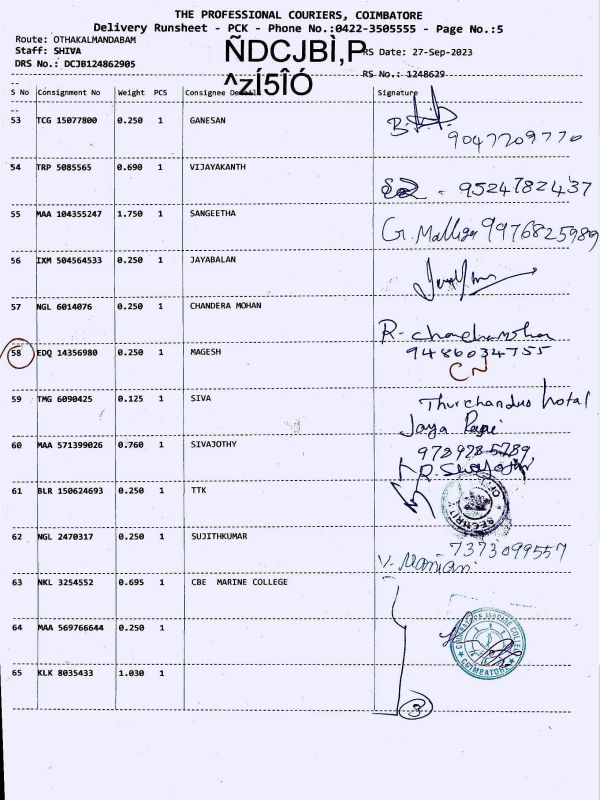 THE PROFESSIONAL COURIERS, COIMBATORE
Delivery Runsheet - PCK - Phone No.:0422-3505555 - Page No.:5
Route: OTHAKALMANDABAM
Staff: SHIVA ÑDCJBÌ,P RS Date: 27-Sep-2023
DRS No.: DCJB124862905 ^zÍ5ÎÓ RS No.: 1248629
S No Consignment No Weight PCS Consignee Detail Signature
53 TCG 15077800 0.250 1 GANESAN
9047709770
54 TRP 5085565 0.690 1 VIJAYAKANTH
9524782437
55 MAA 104355247 1.750 1 SANGEETHA
G. Malliga 9976825989
56 IXM 504564533 0.250 1 JAYABALAN
57 NGL 6014076 0.250 1 CHANDERA MOHAN
R. chandramohan
58 EDQ 14356980 0.250 1 MAGESH 9486034755
CN
59 TMG 6090425 0.125 1 SIVA
Jaya
60 MAA 571399026 0.760 1 SIVAJOTHY
61 BLR 150624693 0.250 1 TTK
62 NGL 2470317 0.250 1 SUJITHKUMAR
7373099557
V. Manian
63 NKL 3254552 0.695 1 CBE MARINE COLLEGE
64 MAA 569766644 0.250 1
COIMBATORE MARINE COLLEGE
COIMBATORE
65 KLK 8035433 1.030 1
3